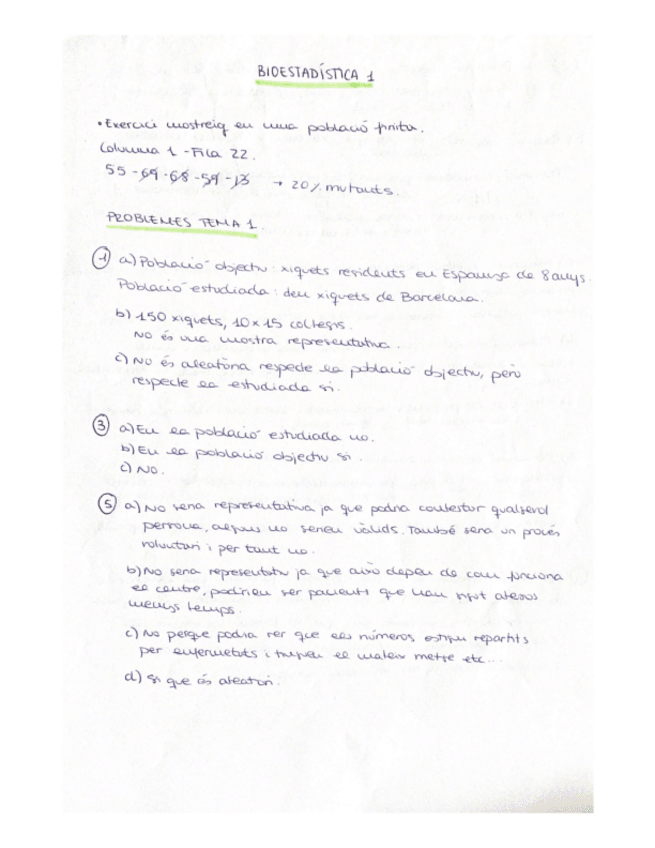 BIOESTADÍSTICA 1
• Exercici mostreig en una població finita.
Columna 1 - Fila 22.
55 - 69 - 68 - 59 - 13 → 20% mutants.
PROBLEMES TEMA 1.
1 a) Població objectiu: xiquets residents en Espanya de 8 anys.
Població estudiada: deu xiquets de Barcelona.
b) 150 xiquets, 10 x 15 col·legis.
No és una mostra representativa.
c) No és aleatòria respecte la població objectiu, però
respecte la estudiada si.
3 a) En la població estudiada no.
b) En la població objectiu si.
c) No.
5 a) No seria representativa ja que podria contestar qualsevol
persona, alguns no serien vàlids. També seria un procés
voluntari i per tant no.
b) No seria representatiu ja que això depen de com funciona
el centre, podrien ser pacients que han sigut atesos
menys temps.
c) No perque podria ser que els números estiguen repartits
per enfermetats i el mateix metge etc...
d) Si que és aleatori.